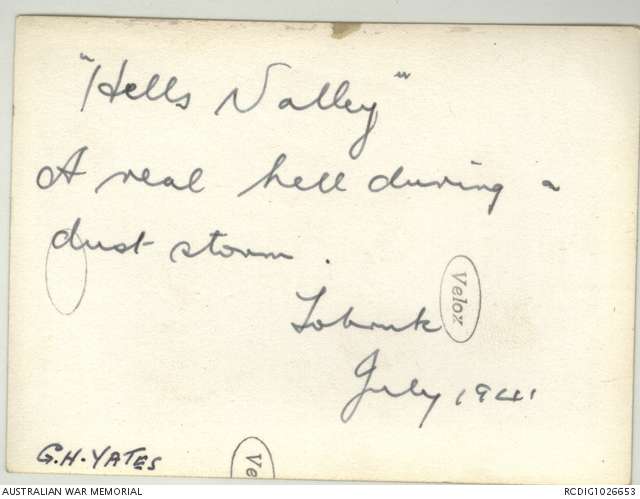 "Hells Valley"
A real hell during a
dust storm.
Velox
Tobruk
July 1941
G.H. YATES
Ve
AUSTRALIAN WAR MEMORIAL
RCDIG1026653